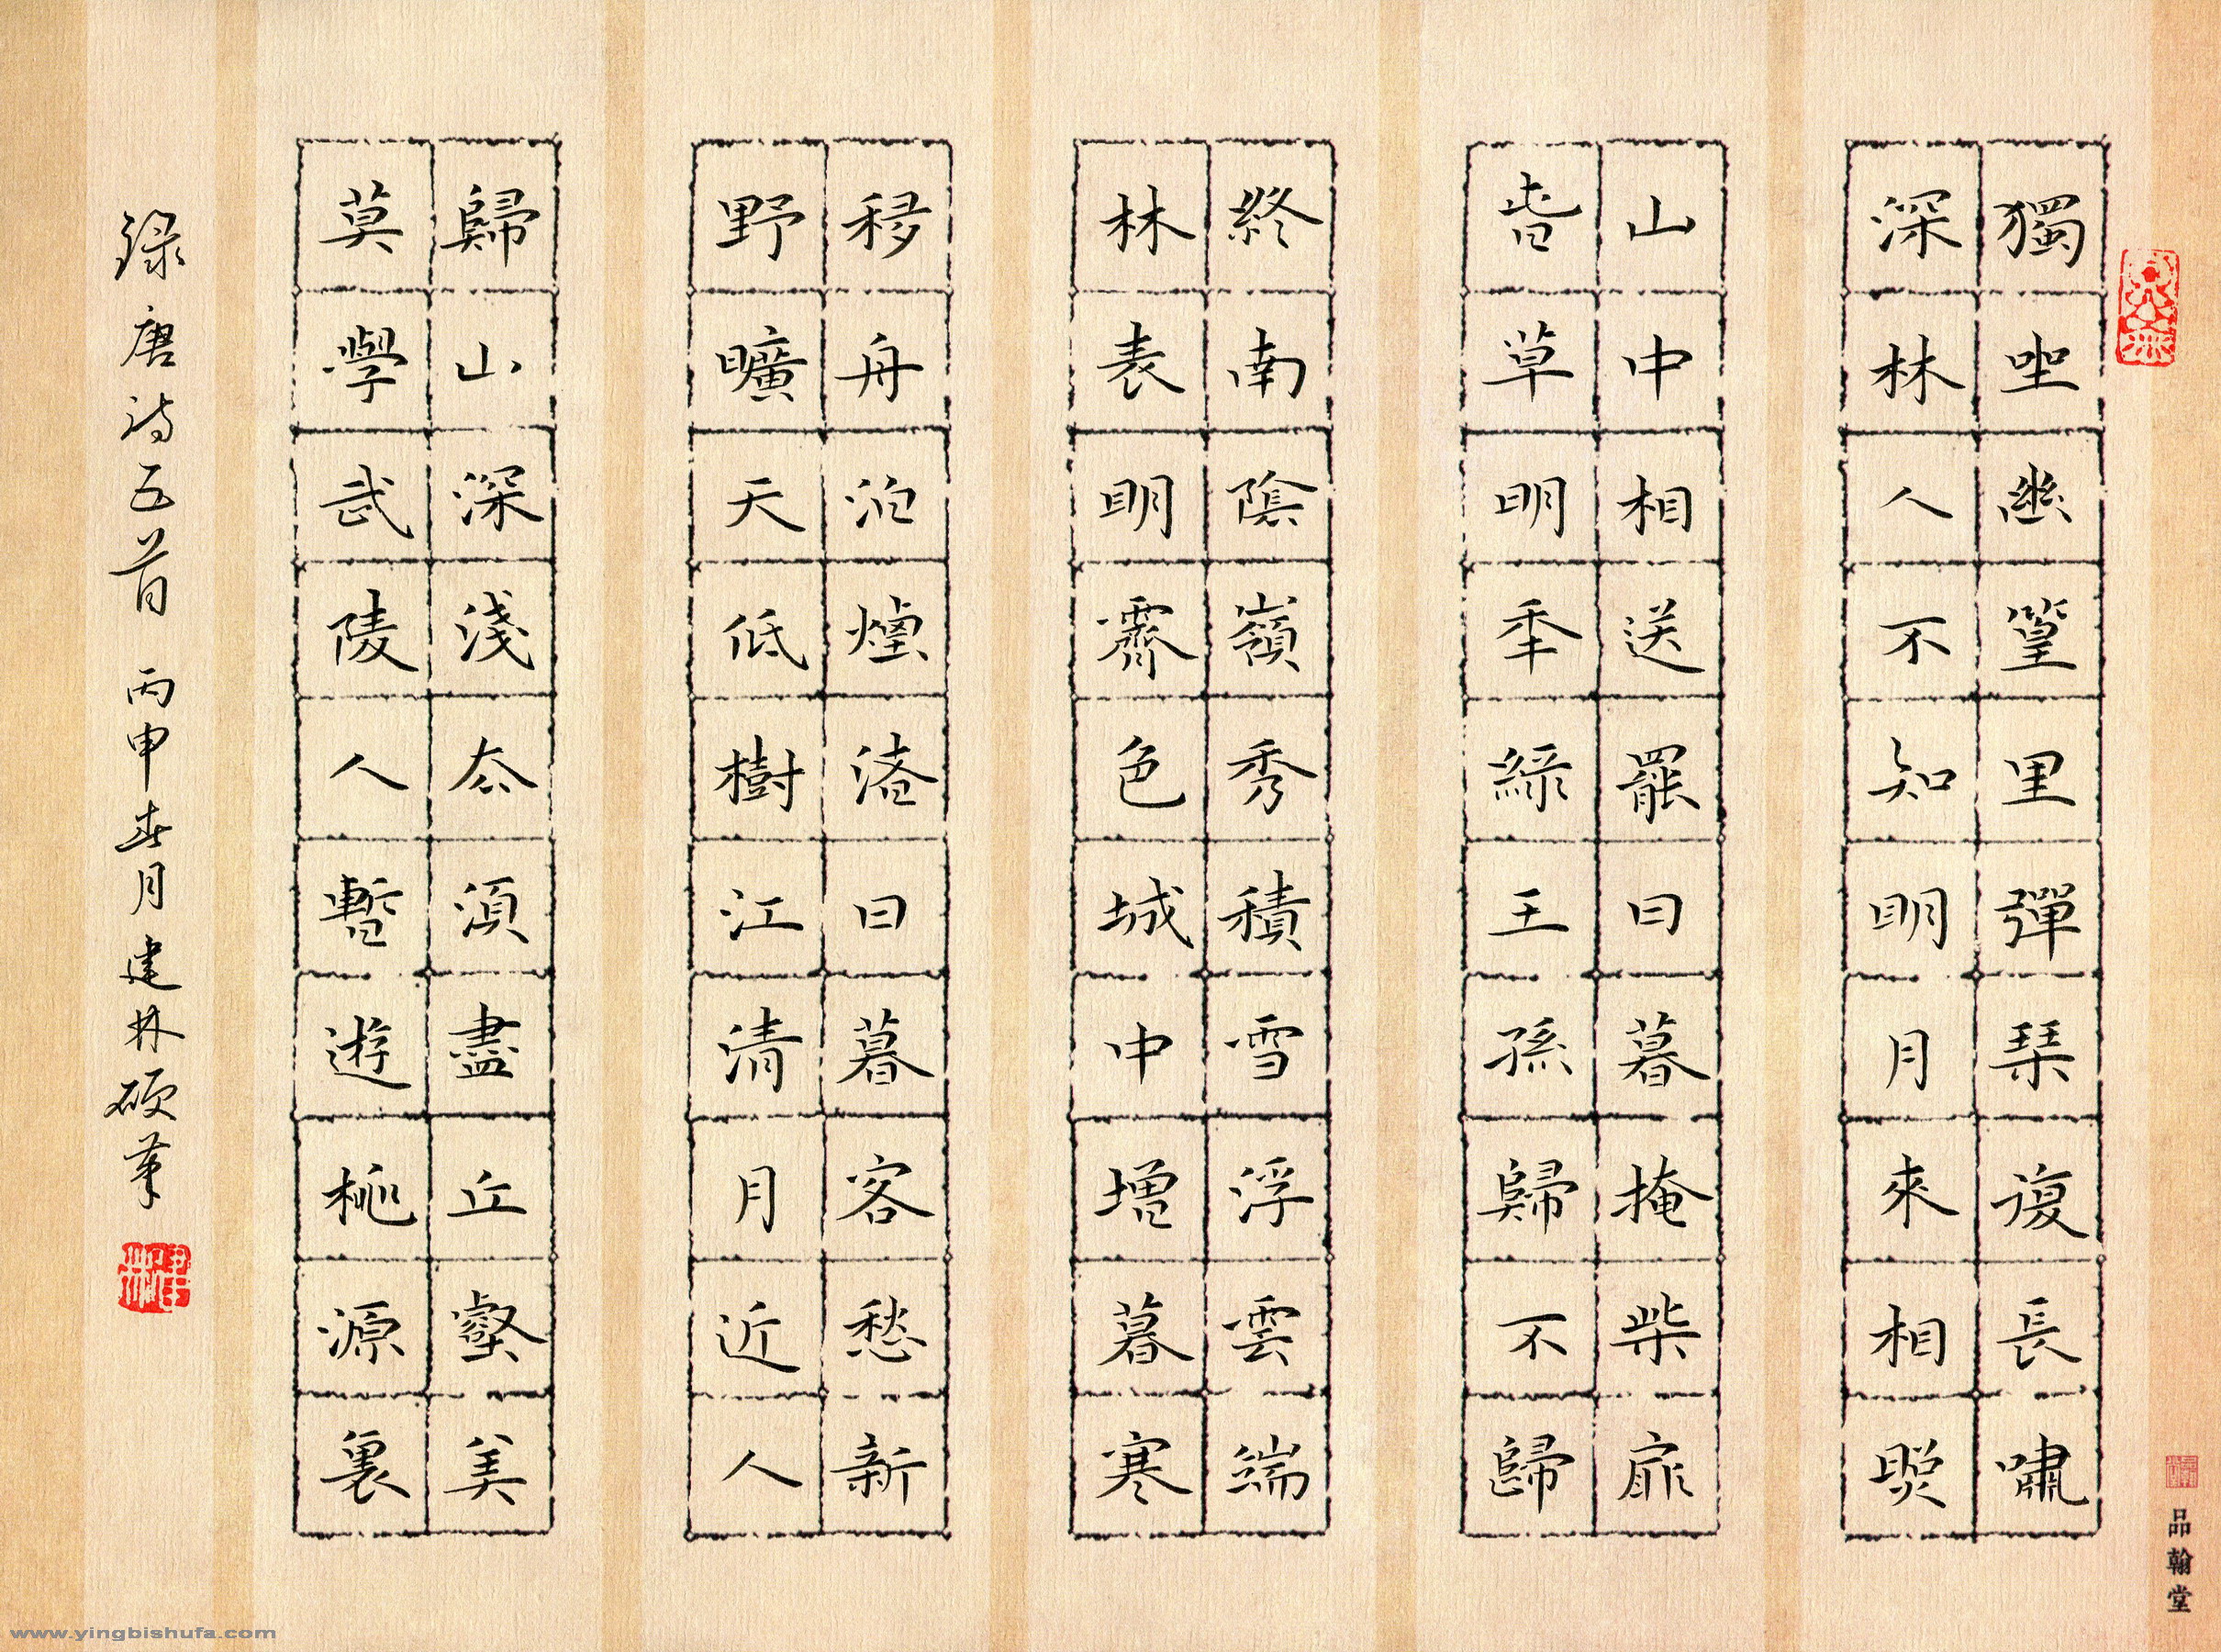 獨坐幽篁里彈琴復長嘯
深林人不知明月來相照
山中相送罷日暮掩柴扉
春草明年綠王孫歸不歸
終南陰嶺秀積雪浮雲端
林表明霽色城中增暮寒
移舟泊煙渚日暮客愁新
野曠天低樹江清月近人
歸山深淺去須盡丘壑美
莫學武陵人暫遊桃源裏
錄唐詩五首 丙申春月建林硬筆
建林
品翰堂
www.yingbishufa.com